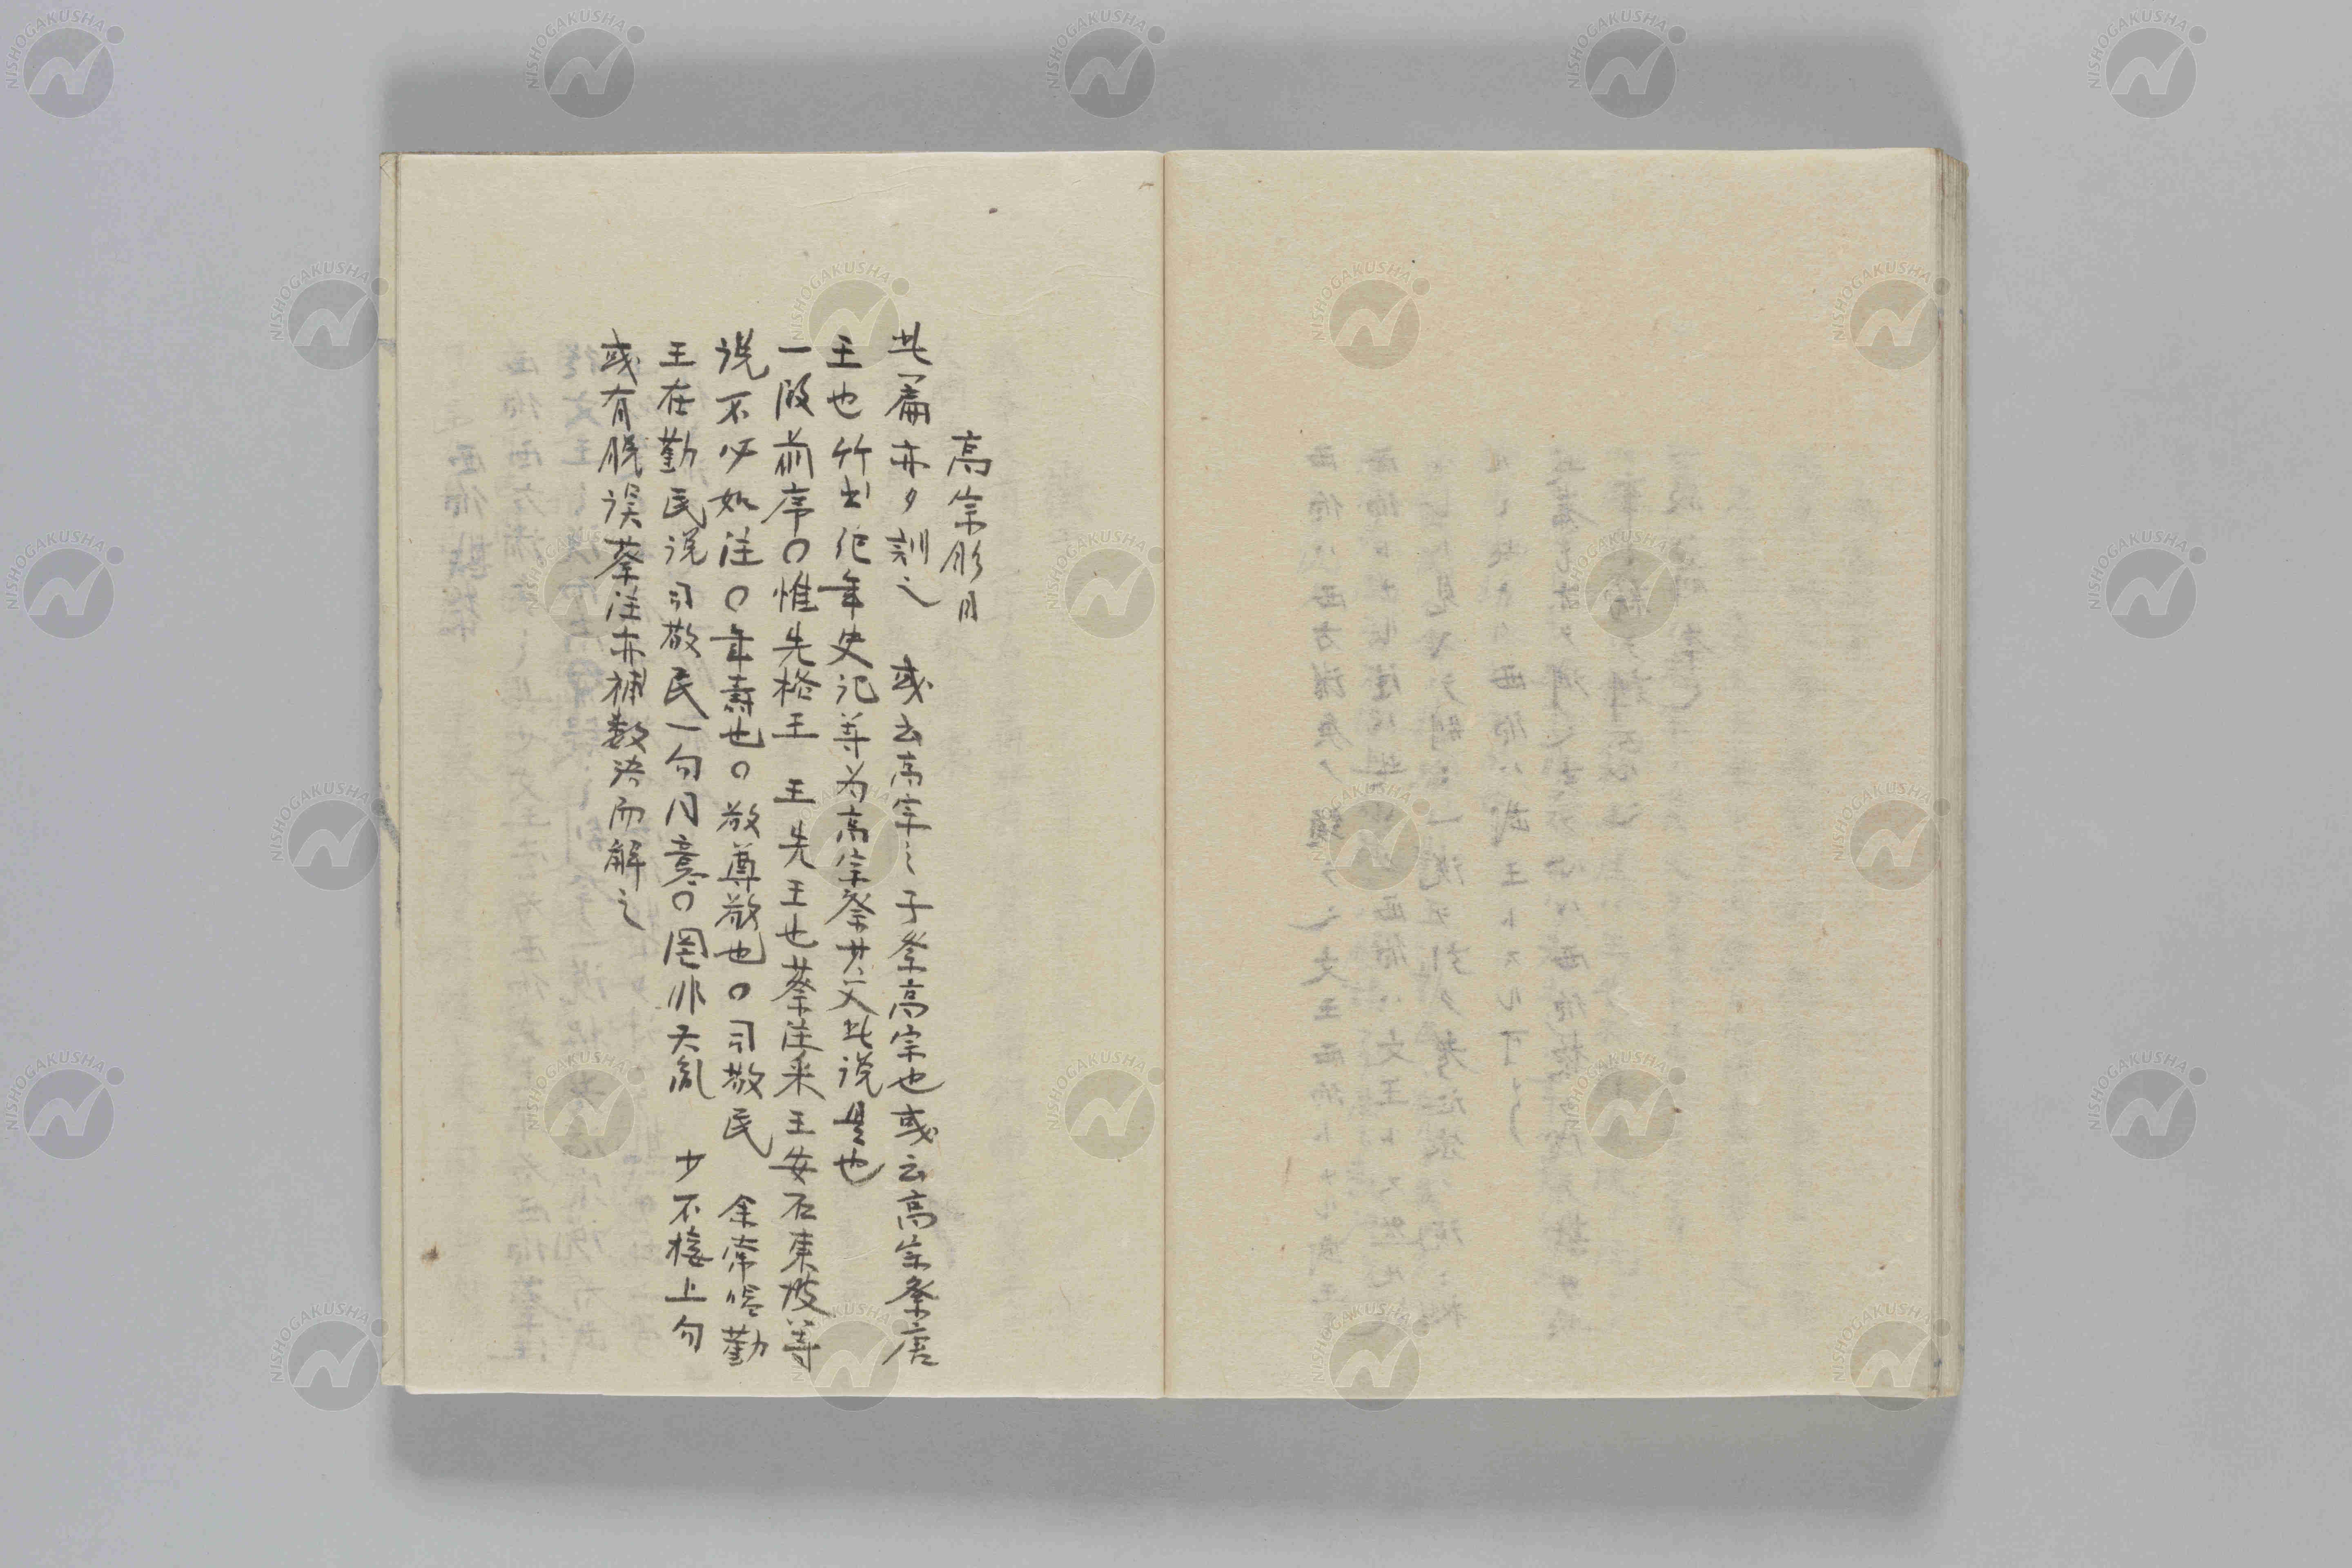 高宗肜日
此篇亦夕訓之　或云高宗之子祭高宗也或云高宗祭唐
王也竹书纪年史记等为高宗祭其父此说是也
一段前序〇惟先格王　王先王也蔡注采王安石東坡等
说不必如注〇年壽也〇敬尊敬也〇司敬民　余常
王在勤民说司敬民一句同意〇罔非天胤　少不接上句
或有脱误蔡注亦補数语而解之
NISHOGAKUSHA